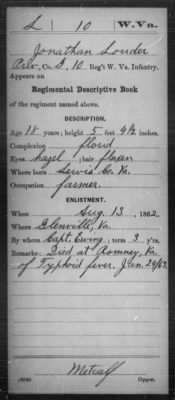 L 10 W.Va.
Jonathan Louder
Co. I, 10 Reg't W. Va. Infantry.
Appears on
Regimental Descriptive Book
of the regiment named above.
DESCRIPTION.
Age 18 years; height 5 feet 9½ inches.
Complexion florid
Eyes hazel; hair flaxen
Where born Lewis Co. Va.
Occupation farmer.
ENLISTMENT.
When Aug. 13, 1862
Where Glenville, Va.
By whom Capt. Ewing; term 3 y'rs.
Remarks: Died at Romney, Va.
of Typhoid fever, Jan. 29/63.
Metcalf
Copyist.